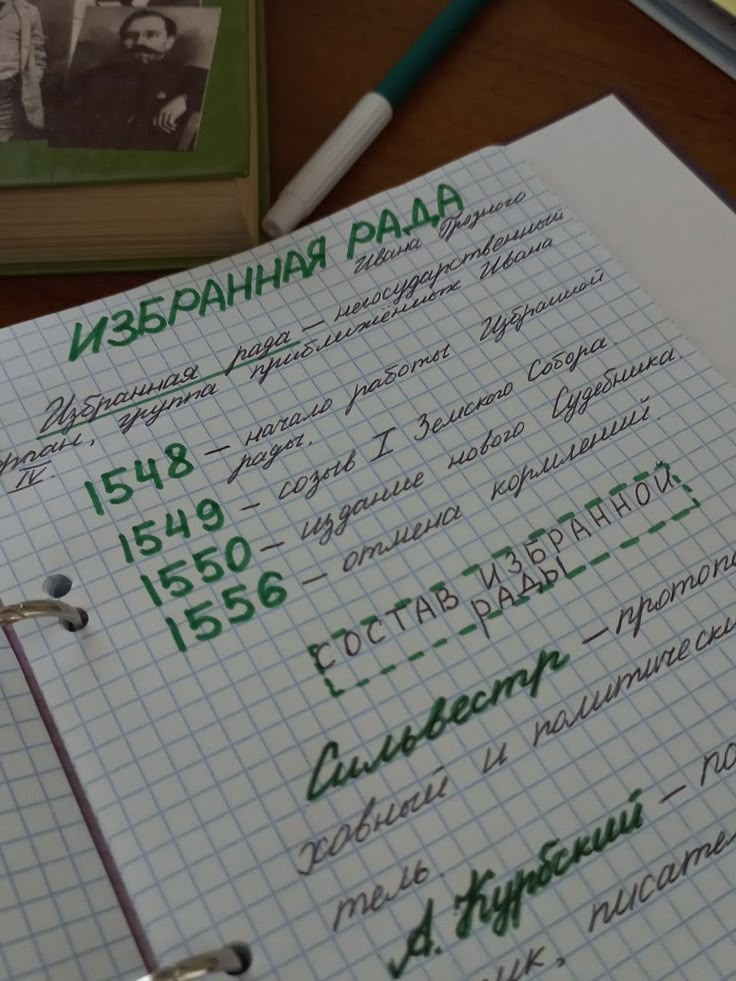 ИЗБРАННАЯ РАДА
Ивана Грозного
Избранная рада – негосударственный
орган, группа приближённых Ивана
IV.
1548 – начало работы Избранной
рады.
1549 – созыв I Земского Собора.
1550 – издание нового Судебника.
1556 – отмена кормлений
СОСТАВ ИЗБРАННОЙ
РАДЫ
Сильвестр –
ховный и
тель.
А. Курбский –